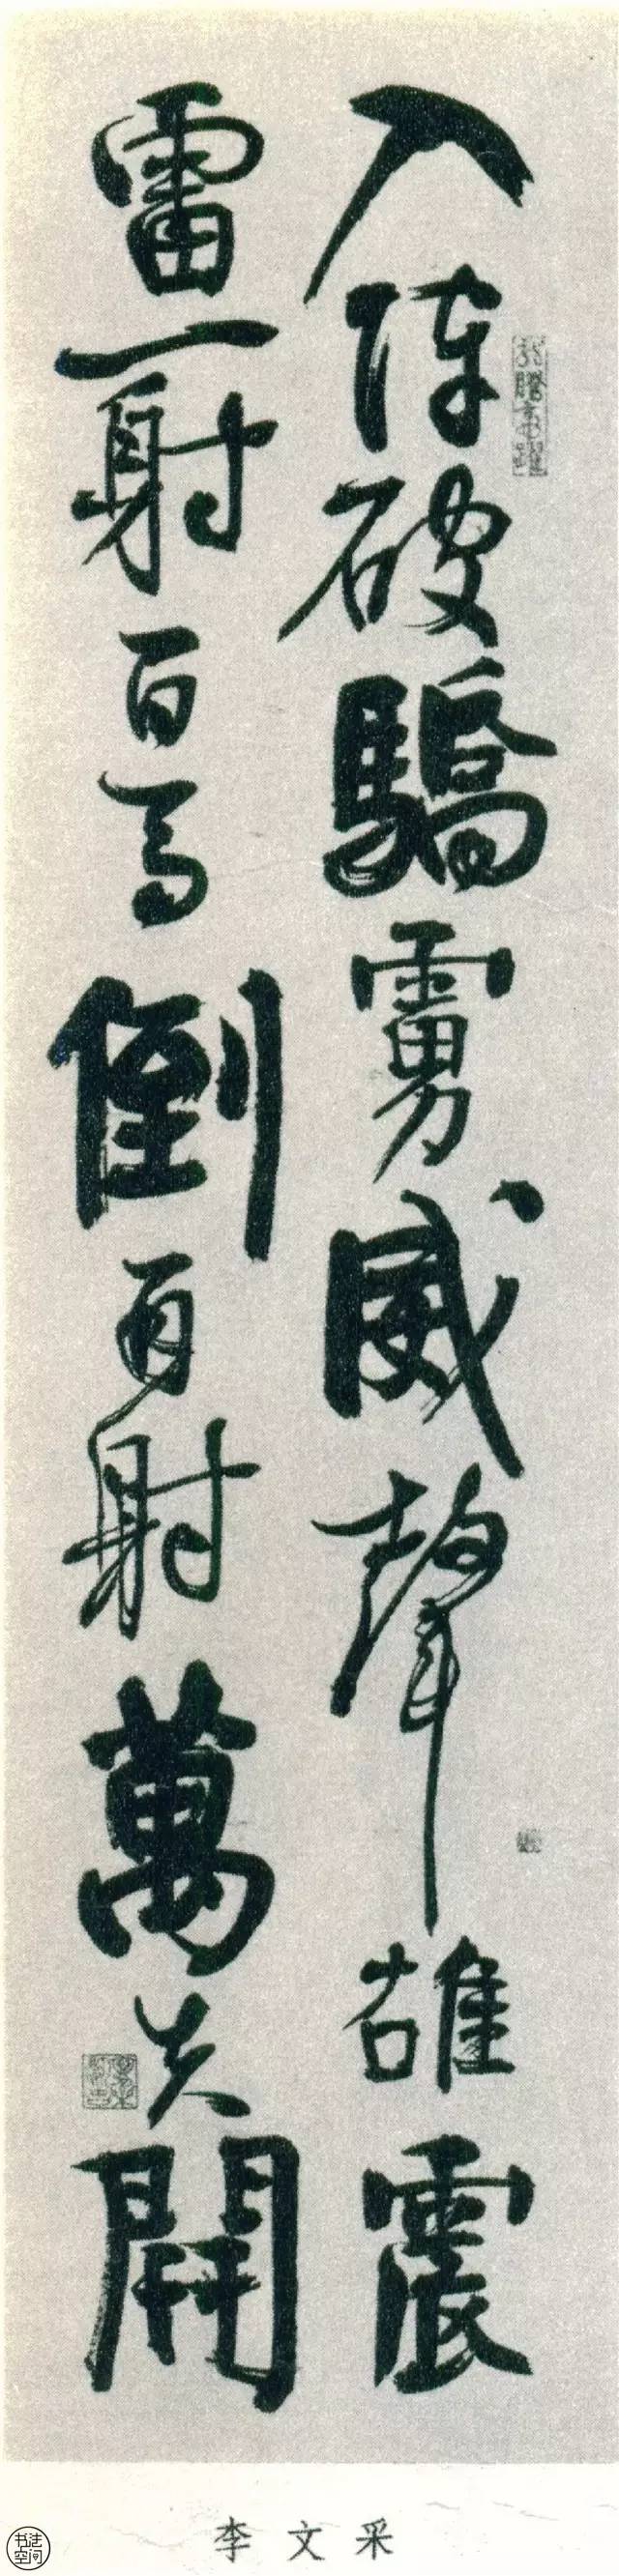 入陣破驕虜威聲雄震
雷一射百馬倒再射萬夫開
李文采
书法空间